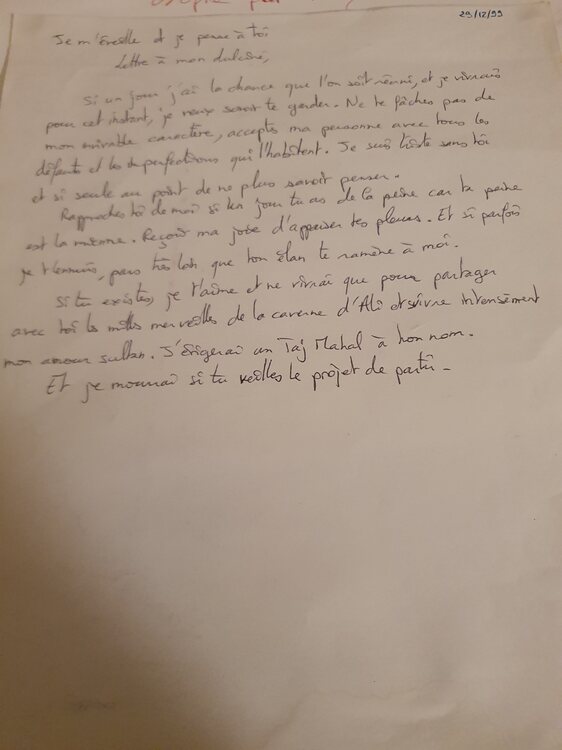 29/12/99
Je m'éveille et je pense à toi
Lettre à mon dulciné,
Si un jour j'ai la chance que l'on soit réuni, et je vivrais
pour cet instant, je veux savoir te garder. Ne te fâches pas de
mon miirable caractère, acceptes ma personne avec tous les
défauts et les imperfections qui l'habitent. Je suis triste sans toi
et si seule au point de ne plus savoir penser.
Rapproches toi de moi si un jour tu as de la peine car ta peine
est la mienne. Reçois ma joie d'apaiser tes pleurs. Et si parfois
je t'ennuie, pars très loin que ton élan te ramène à moi.
Si tu existes, je t'aime et ne vivrai que pour partager
avec toi les milles merveilles de la caverne d'Ali et suivre intensément
mon amour sultan. J'érigerai un Taj Mahal à ton nom.
Et je mourrai si tu veilles le projet de partir -